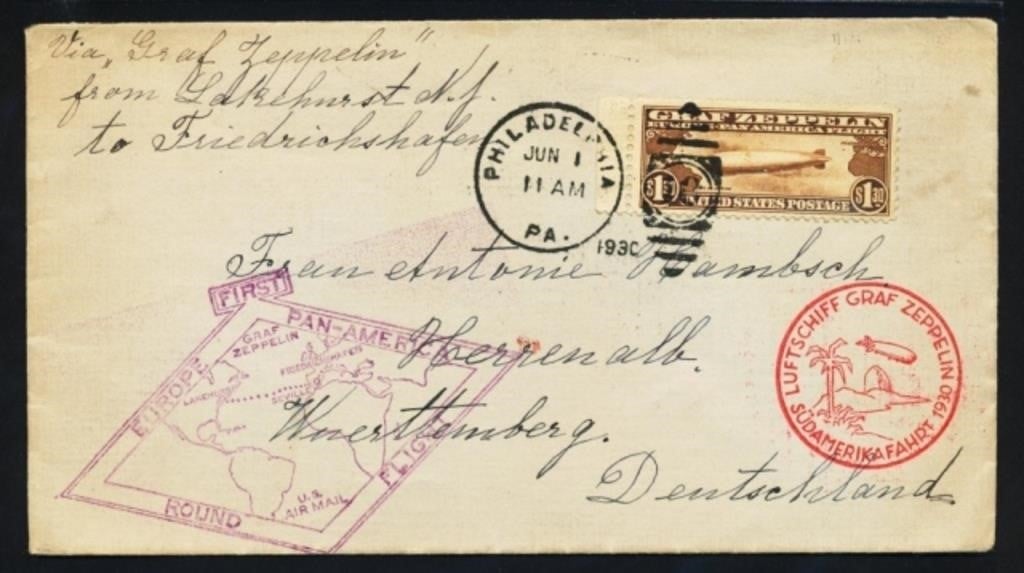 Via "Graf Zeppelin"
from Lakehurst N.J.
to Friedrichshafen
PHILADELPHIA
JUN 1
11 AM
PA.
1930
GRAF ZEPPELIN
EUROPE PAN-AMERICA FLIGHT
$1.30 $1.30
UNITED STATES POSTAGE
Frau Antonie
Herrenalb.
Wuerttemberg.
Deutschland.
FIRST
EUROPE PAN-AMERICA
ROUND FLIGHT
GRAF
ZEPPELIN
FRIEDRICHSHAFEN
LAKEHURST
SEVILLE
U.S.
AIR MAIL
LUFTSCHIFF GRAF ZEPPELIN
SÜDAMERIKAFAHRT 1930